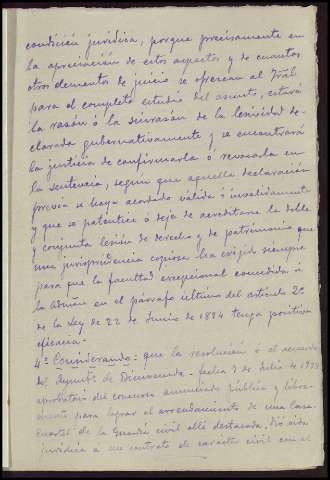 condición jurídica, porque precisamente en
la apreciación de estos aspectos y de cuantos
otros elementos de juicio se ofrezcan al Trál
para el completo estudio del asunto, estará
la razón ó la sinrazón de la lesividad de-
clarada gubernativamente y se encontrará
la justicia de confirmarla ó revocarla en
la sentencia, segun que aquella declaración
previa se haya acordado válida ó inválidamente
y que se patentice ó deje de acreditarse la doble
y conjunta lesión de derecho y de patrimonio que
una jurisprudencia copiosa ha exigido siempre
para que la facultad excepcional concedida á
la Admón en el párrafo último del artículo 2º
de la Ley de 22 de Junio de 1894 tenga positiva
eficacia.
4º Considerando: que la resolución ó el acuerdo
del Ayuntº de fecha 7 de Julio de
aprobatoria del concurso anunciado pública y libre-
mente para lograr el arrendamiento de una Casa-
Cuartel de la Guardia civil allí destacada, dió vida
jurídica á un contrato de carácter civil con el